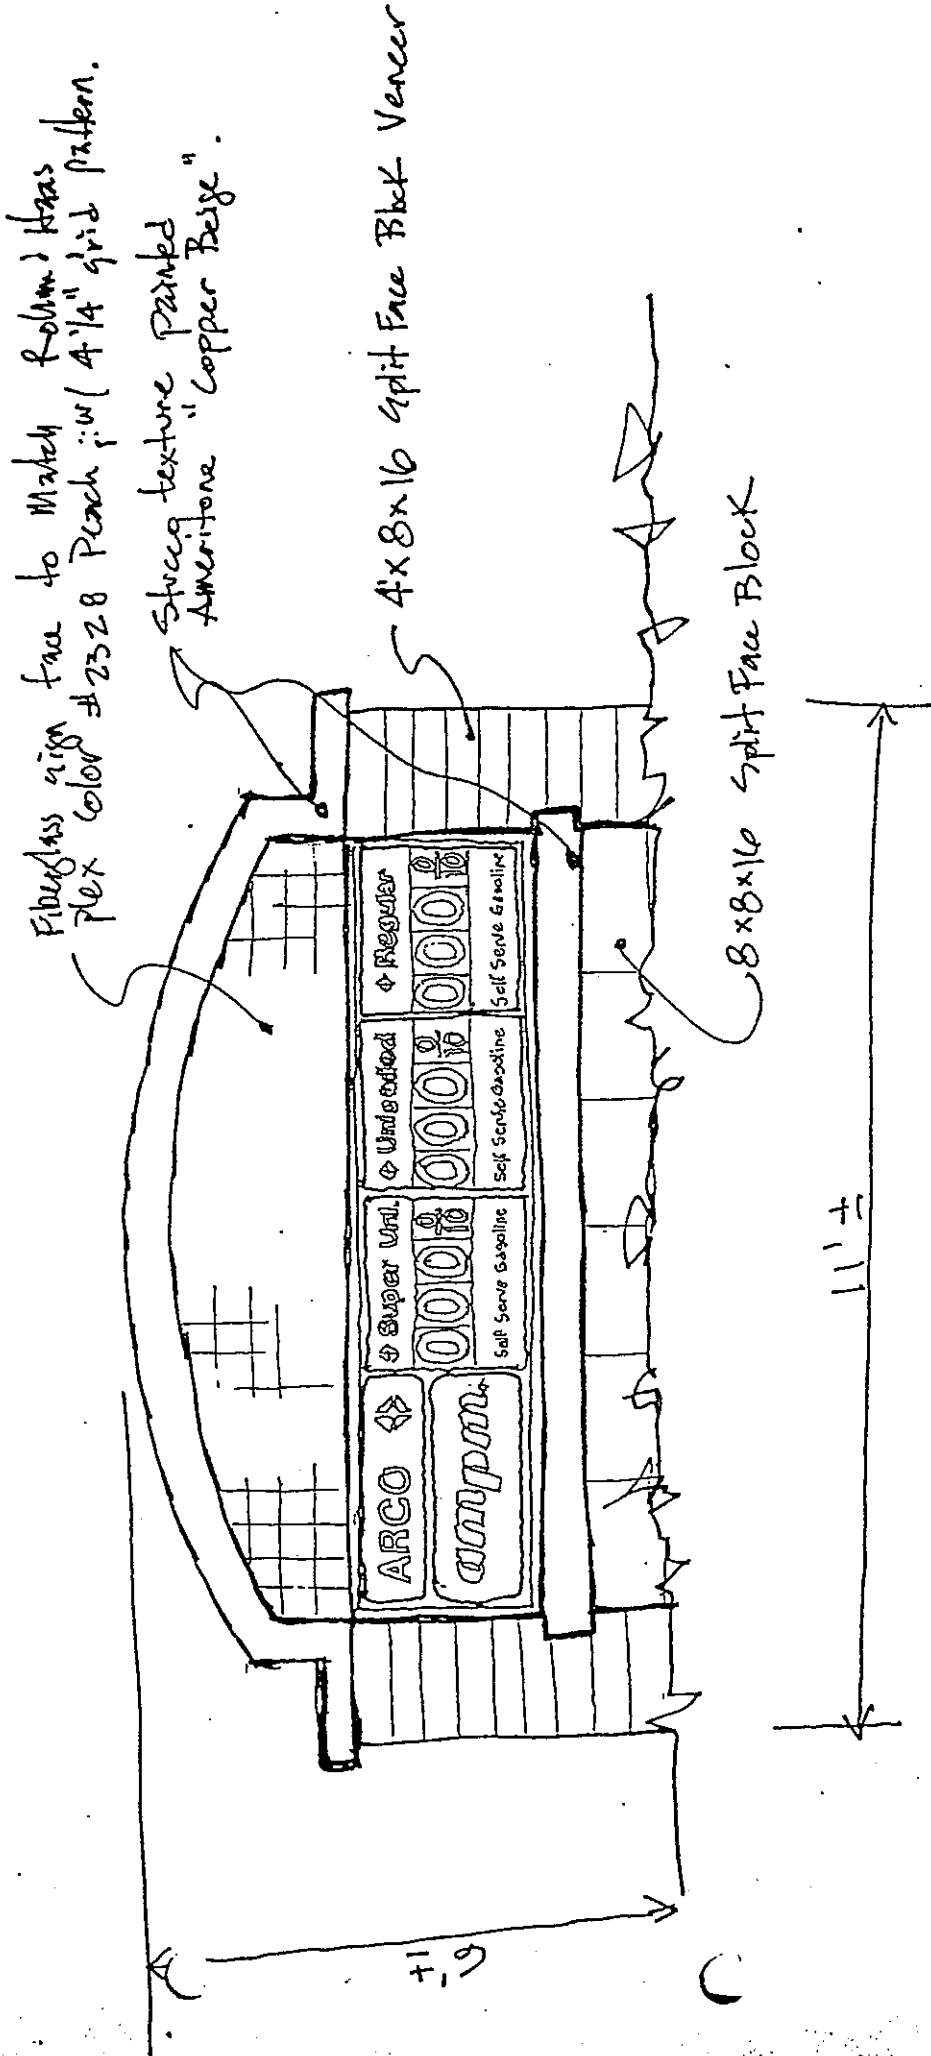 Fiberglass sign face to Match Rohm & Haas
plex color #2328 Peach ; w/ 4"/4" grid pattern.
Stucco texture painted
Ameritone "Copper Beige".
4x8x16 Split Face Block Veneer
ARCO
ampm
Super Unl.
000 9/10
Self Serve Gasoline
Unleaded
000 9/10
Self Serve Gasoline
Regular
000 9/10
Self Serve Gasoline
8x8x16 Split Face Block
6' ±
11' ±